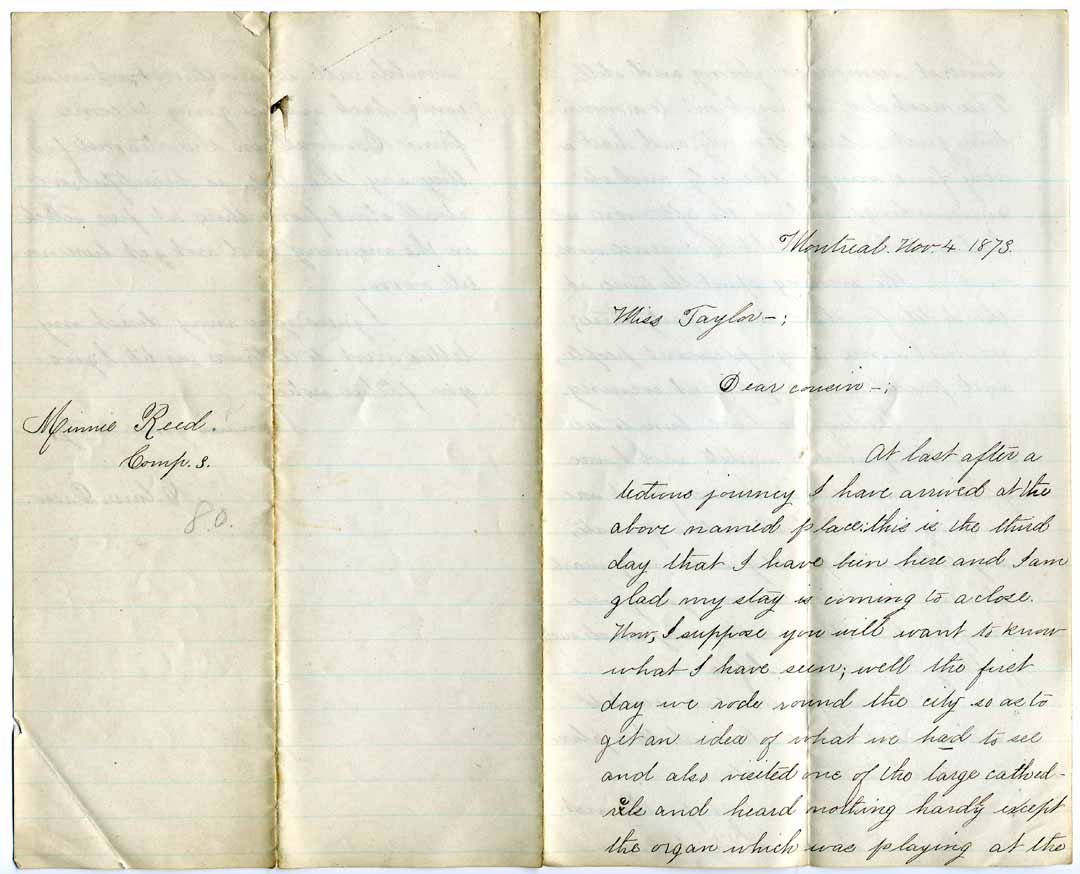 Minnie Reed.
Comp. 3.
80.
Montreal. Nov. 4 1873.
Miss Taylor—;
Dear cousin—;
At last after a
tedious journey I have arrived at the
above named place: this is the third
day that I have been here and I am
glad my stay is coming to a close.
Now, I suppose you will want to know
what I have seen; well the first
day we rode round the city so as to
get an idea of what we had to see
and also visited one of the large cathed-
rels and heard nothing hardly except
the organ which was playing at the